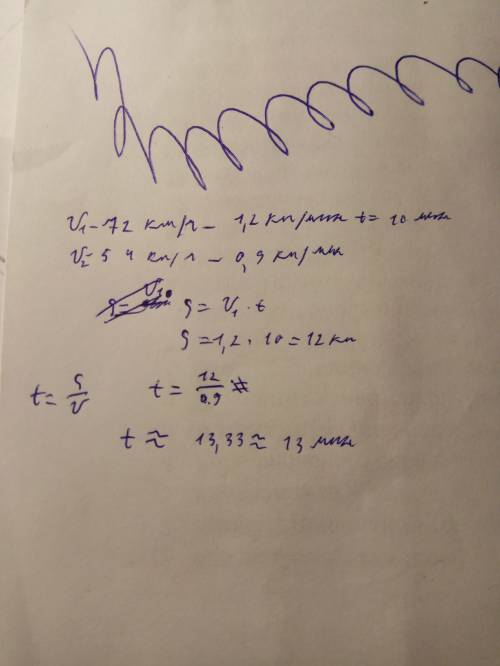 V₁ - 72 км/ч - 1,2 км/мин t = 10 мин
V₂ - 54 км/ч - 0,9 км/мин
S = V₁ · t
S = 1,2 · 10 = 12 км
t = S/V t = 12/0.9
t ≈ 13,33 ≈ 13 мин